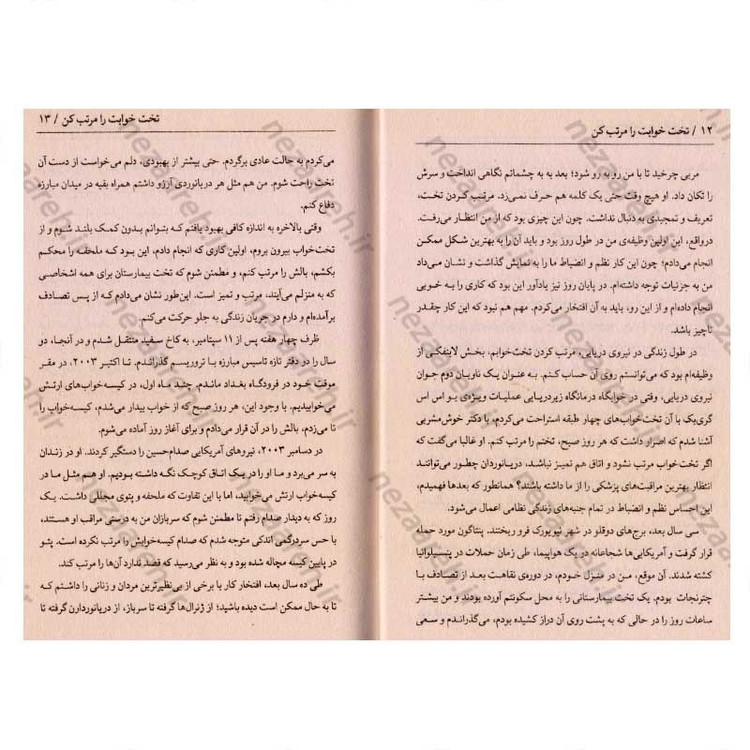 ۱۲ / تخت خوابت را مرتب کن
مربی چرخید تا با من رو به رو شود؛ بعد یه به چشمانم نگاهی انداخت و سرش
را تکان داد. او هیچ وقت حتی یک کلمه هم حرف نمی‌زد. مرتب کردن تخت،
تعریف و تمجیدی به دنبال نداشت. چون این چیزی بود که از من انتظار می‌رفت.
درواقع، این اولین وظیفه‌ی من در طول روز بود و باید آن را به بهترین شکل ممکن
انجام می‌دادم؛ چون این کار نظم و انضباط ما را به نمایش گذاشت و نشان می‌داد
من به جزئیات توجه داشته‌ام. در پایان روز نیز یادآور این بود که کاری را به خوبی
انجام داده‌ام و از این رو، باید به آن افتخار می‌کردم. مهم هم نبود که این کار چقدر
ناچیز باشد.
در طول زندگی در نیروی دریایی، مرتب کردن تخت‌خوابم، بخش لاینفکی از
وظیفه‌ام بود که می‌توانستم روی آن حساب کنم. به عنوان یک ناوبان دوم جوان
نیروی دریایی، وقتی در خوابگاه درمانگاه زیردریایی عملیات ویژه‌ی یو اس اس
گری‌بک با آن تخت‌خواب‌های چهار طبقه استراحت می‌کردم، با دکتر خوش‌مشربی
آشنا شدم که اصرار داشت که هر روز صبح، تختم را مرتب کنم. او غالبا می‌گفت که
اگر تخت‌خواب مرتب نشود و اتاق هم تمیز نباشد، دریانوردان چطور می‌توانند
انتظار بهترین مراقبت‌های پزشکی را از ما داشته باشند؟ همانطور که بعدها فهمیدم،
این احساس نظم و انضباط در تمام جنبه‌های زندگی نظامی اعمال می‌شود.
سی سال بعد، برج‌های دوقلو در شهر نیویورک فرو ریختند. پنتاگون مورد حمله
قرار گرفت و آمریکایی‌ها شجاعانه در یک هواپیما، طی زمان حملات در پنسیلوانیا
کشته شدند. آن موقع، من در منزل خودم، در دوره‌ی نقاهت بعد از تصادف با
چترنجات بودم. یک تخت بیمارستانی را به محل سکونتم آورده بودند و من بیشتر
ساعات روز را در حالی که به پشت روی آن دراز کشیده بودم، می‌گذراندم و سعی
تخت خوابت را مرتب کن / ۱۳
می‌کردم به حالت عادی برگردم. حتی بیشتر از بهبودی، دلم می‌خواست از دست آن
تخت راحت شوم. من هم مثل هر دریانوردی آرزو داشتم همراه بقیه در میدان مبارزه
دفاع کنم.
وقتی بالاخره به اندازه کافی بهبود یافتم که بتوانم بدون کمک بلند شوم و از
تخت‌خواب بیرون بروم، اولین کاری که انجام دادم، این بود که ملحفه را محکم
بکشم، بالش را مرتب کنم، و مطمئن شوم که تخت بیمارستان برای همه اشخاصی
که به منزلم می‌آیند، مرتب و تمیز است. این‌طور نشان می‌دادم که از پس تصادف
برآمده‌ام و دارم در جریان زندگی به جلو حرکت می‌کنم.
ظرف چهار هفته پس از ۱۱ سپتامبر، به کاخ سفید منتقل شدم و در آنجا، دو
سال را در دفتر تازه تاسیس مبارزه با تروریسم گذراندم. تا اکتبر ۲۰۰۳، در مقر
موقت خود در فرودگاه بغداد ماندم. چند ماه اول، در کیسه‌خواب‌های ارتش
می‌خوابیدیم. با وجود این، هر روز صبح که از خواب بیدار می‌شدم، کیسه‌خواب را
تا می‌زدم، بالش را در آن قرار می‌دادم و برای آغاز روز آماده می‌شوم.
در دسامبر ۲۰۰۳، نیروهای آمریکایی صدام‌حسین را دستگیر کردند. او در زندان
به سر می‌برد و ما او را در یک اتاق کوچک نگه داشته بودیم. او هم مثل ما در
کیسه‌خواب ارتش می‌خوابید، اما با این تفاوت که ملحفه و پتوی مجللی داشت. یک
روز که به دیدار صدام رفتم تا مطمئن شوم که سربازان من به درستی مراقب او هستند،
با حس سردرگمی اندکی متوجه شدم که صدام کیسه‌خوابش را مرتب نکرده است. پتو
در پایین کیسه مچاله شده بود و به نظر می‌رسید که قصد ندارد آن‌ها را مرتب کند.
طی ده سال بعد، افتخار کار با برخی از بی‌نظیرترین مردان و زنانی را داشتم که
تا به حال ممکن است دیده باشید؛ از ژنرال‌ها گرفته تا سرباز، از دریانوردارن گرفته تا
nezaareh.ir